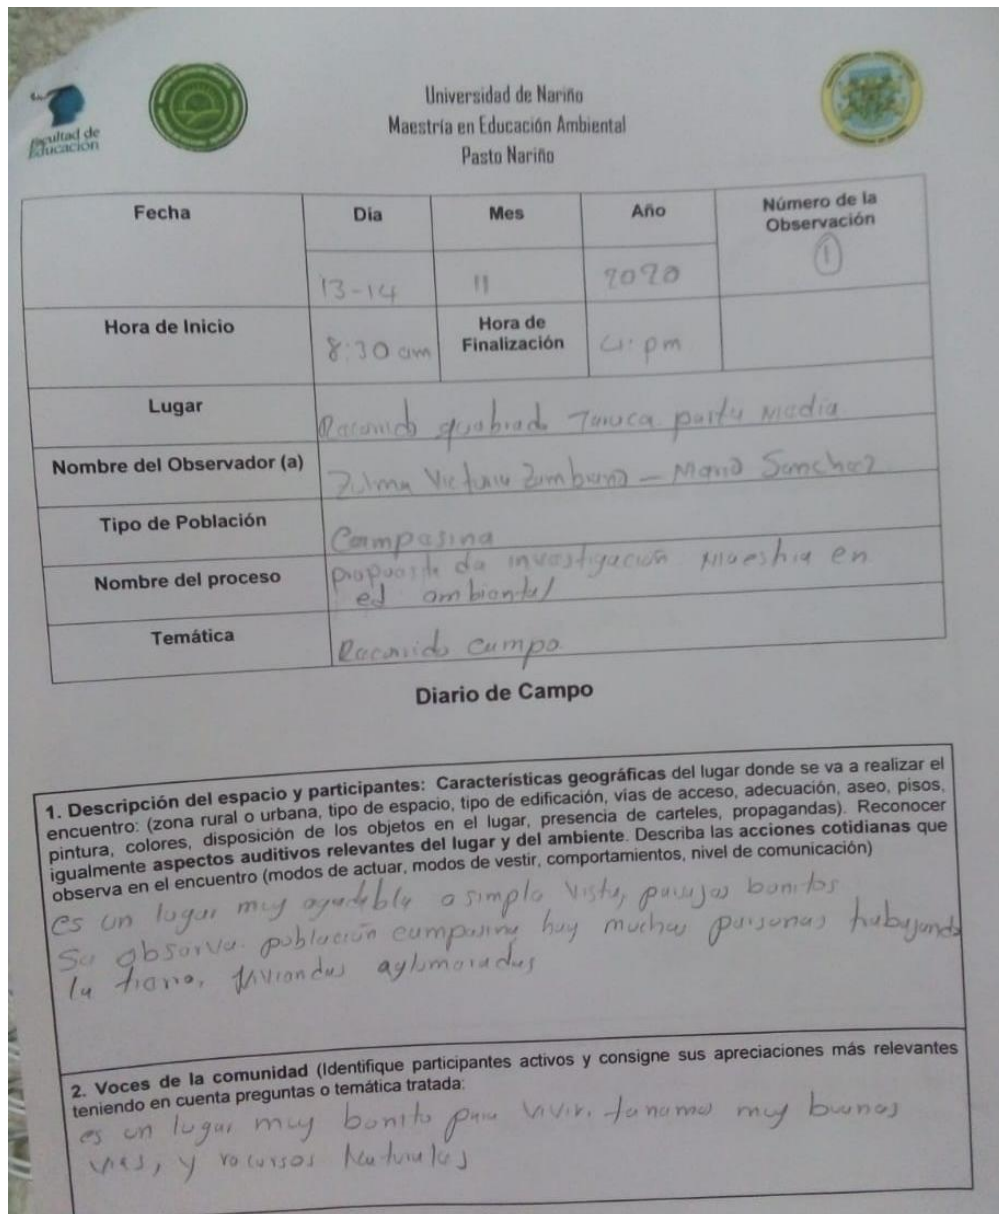 Facultad de
Educación
Universidad de Nariño
Maestría en Educación Ambiental
Pasto Nariño
Fecha
Dia
Mes
Año
Número de la
Observación
1
13-14
11
2020
Hora de Inicio
8:30 am
Hora de
Finalización
4: pm
Lugar
Recorrido quebrada parte media
Nombre del Observador (a)
Victoria Zambrano - Sanchez
Tipo de Población
Campesina
Nombre del proceso
propuesta de investigación Maestria en
ed ambiental
Temática
Recorrido campo.
Diario de Campo
1. Descripción del espacio y participantes: Características geográficas del lugar donde se va a realizar el
encuentro: (zona rural o urbana, tipo de espacio, tipo de edificación, vías de acceso, adecuación, aseo, pisos,
pintura, colores, disposición de los objetos en el lugar, presencia de carteles, propagandas). Reconocer
igualmente aspectos auditivos relevantes del lugar y del ambiente. Describa las acciones cotidianas que
observa en el encuentro (modos de actuar, modos de vestir, comportamientos, nivel de comunicación)
es un lugar muy agradable a simple vista, paisajes bonitos
Se observa población campesina hay muchas personas trabajando
la tierra, viviendas aglomeradas
2. Voces de la comunidad (Identifique participantes activos y consigne sus apreciaciones más relevantes
teniendo en cuenta preguntas o temática tratada:
es un lugar muy bonito para vivir, tenemos muy buenas
vias, y recursos Naturales